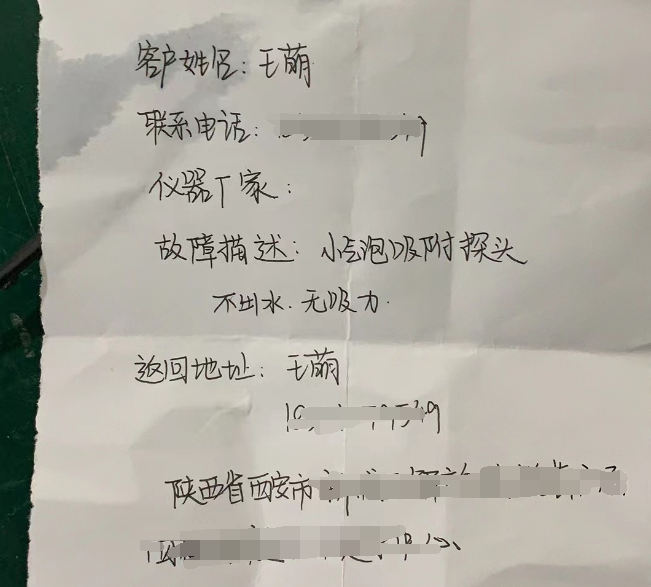 客户姓名:王萌
联系电话:
仪器厂家:
故障描述:小气泡吸附探头
不出水.无吸力.
返回地址:王萌
陕西省西安市